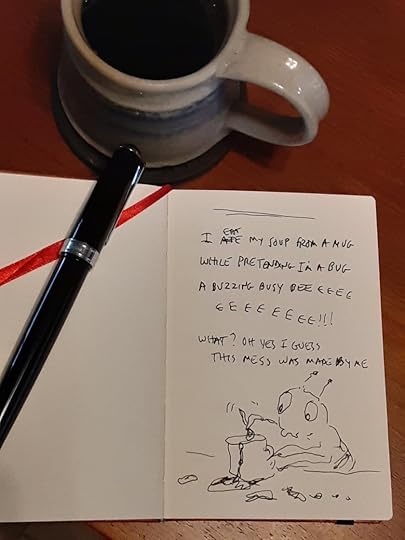 I EAT MY SOUP FROM A MUG
WHILE PRETENDING I'M A BUG
A BUZZING BUSY BEE E E E E
E E E E E E E!!!
WHAT? OH YES I GUESS
THIS MESS WAS MADE BY ME